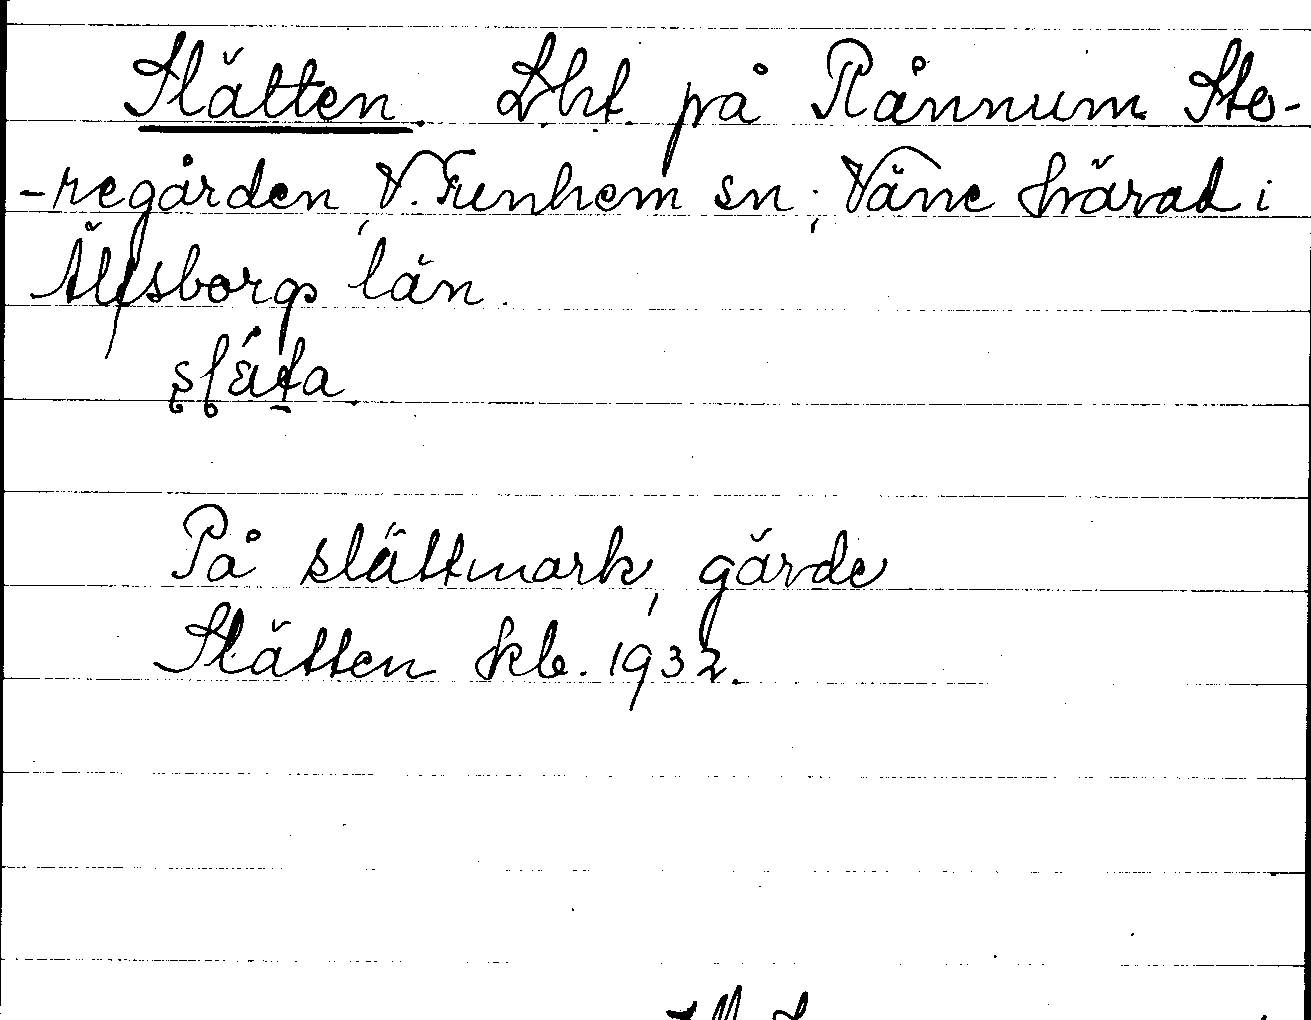 Slätten. Lht. på Rånnum Sto-
-regården, V. Tunhem sn; Väne härad i
Älfsborgs län.
På slättmark, gärde
Slätten skb. 1932.